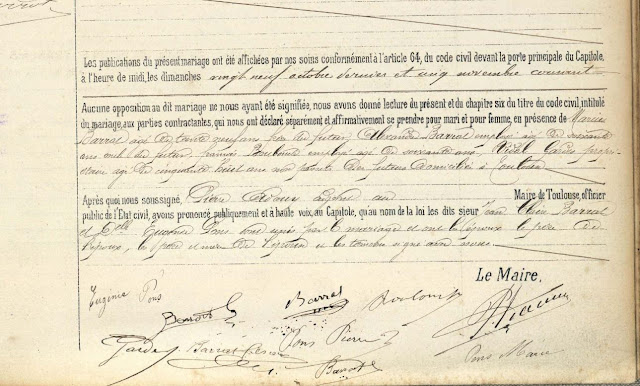 Les publications du présent mariage ont été affichées par nos soins conformément à l'article 64, du code civil devant la porte principale du Capitole,
à l'heure de midi, les dimanches vingt neuf octobre dernier et cinq novembre courant
Aucune opposition au dit mariage ne nous ayant été signifiée, nous avons donné lecture du présent et du chapitre six du titre du code civil, intitulé
du mariage, aux parties contractantes, qui nous ont déclaré séparément et affirmativement se prendre pour mari et pour femme, en présence de Marius
Barral agé de trente neuf ans frère du futur, Alexandre Barral employé agé de soixante
ans oncle du futur, employé agé de soixante ans, Vidal
agé de cinquante huit ans non parents des futurs domiciliés à Toulouse
Après quoi nous soussigné, Pierre adjoint au Maire de Toulouse, officier
public de l'Etat civil, avons prononcé publiquement et à haute voix, au Capitole, qu'au nom de la loi les dits sieur Jean Barral
et Delle Eugénie Pons sont unis par le mariage et ont les époux le père de
l'époux, le père et mère de l'épouse et les témoins signé avec nous.
Le Maire,
Eugénie Pons
Barral
Pons Pierre
Barral
Pons Marie